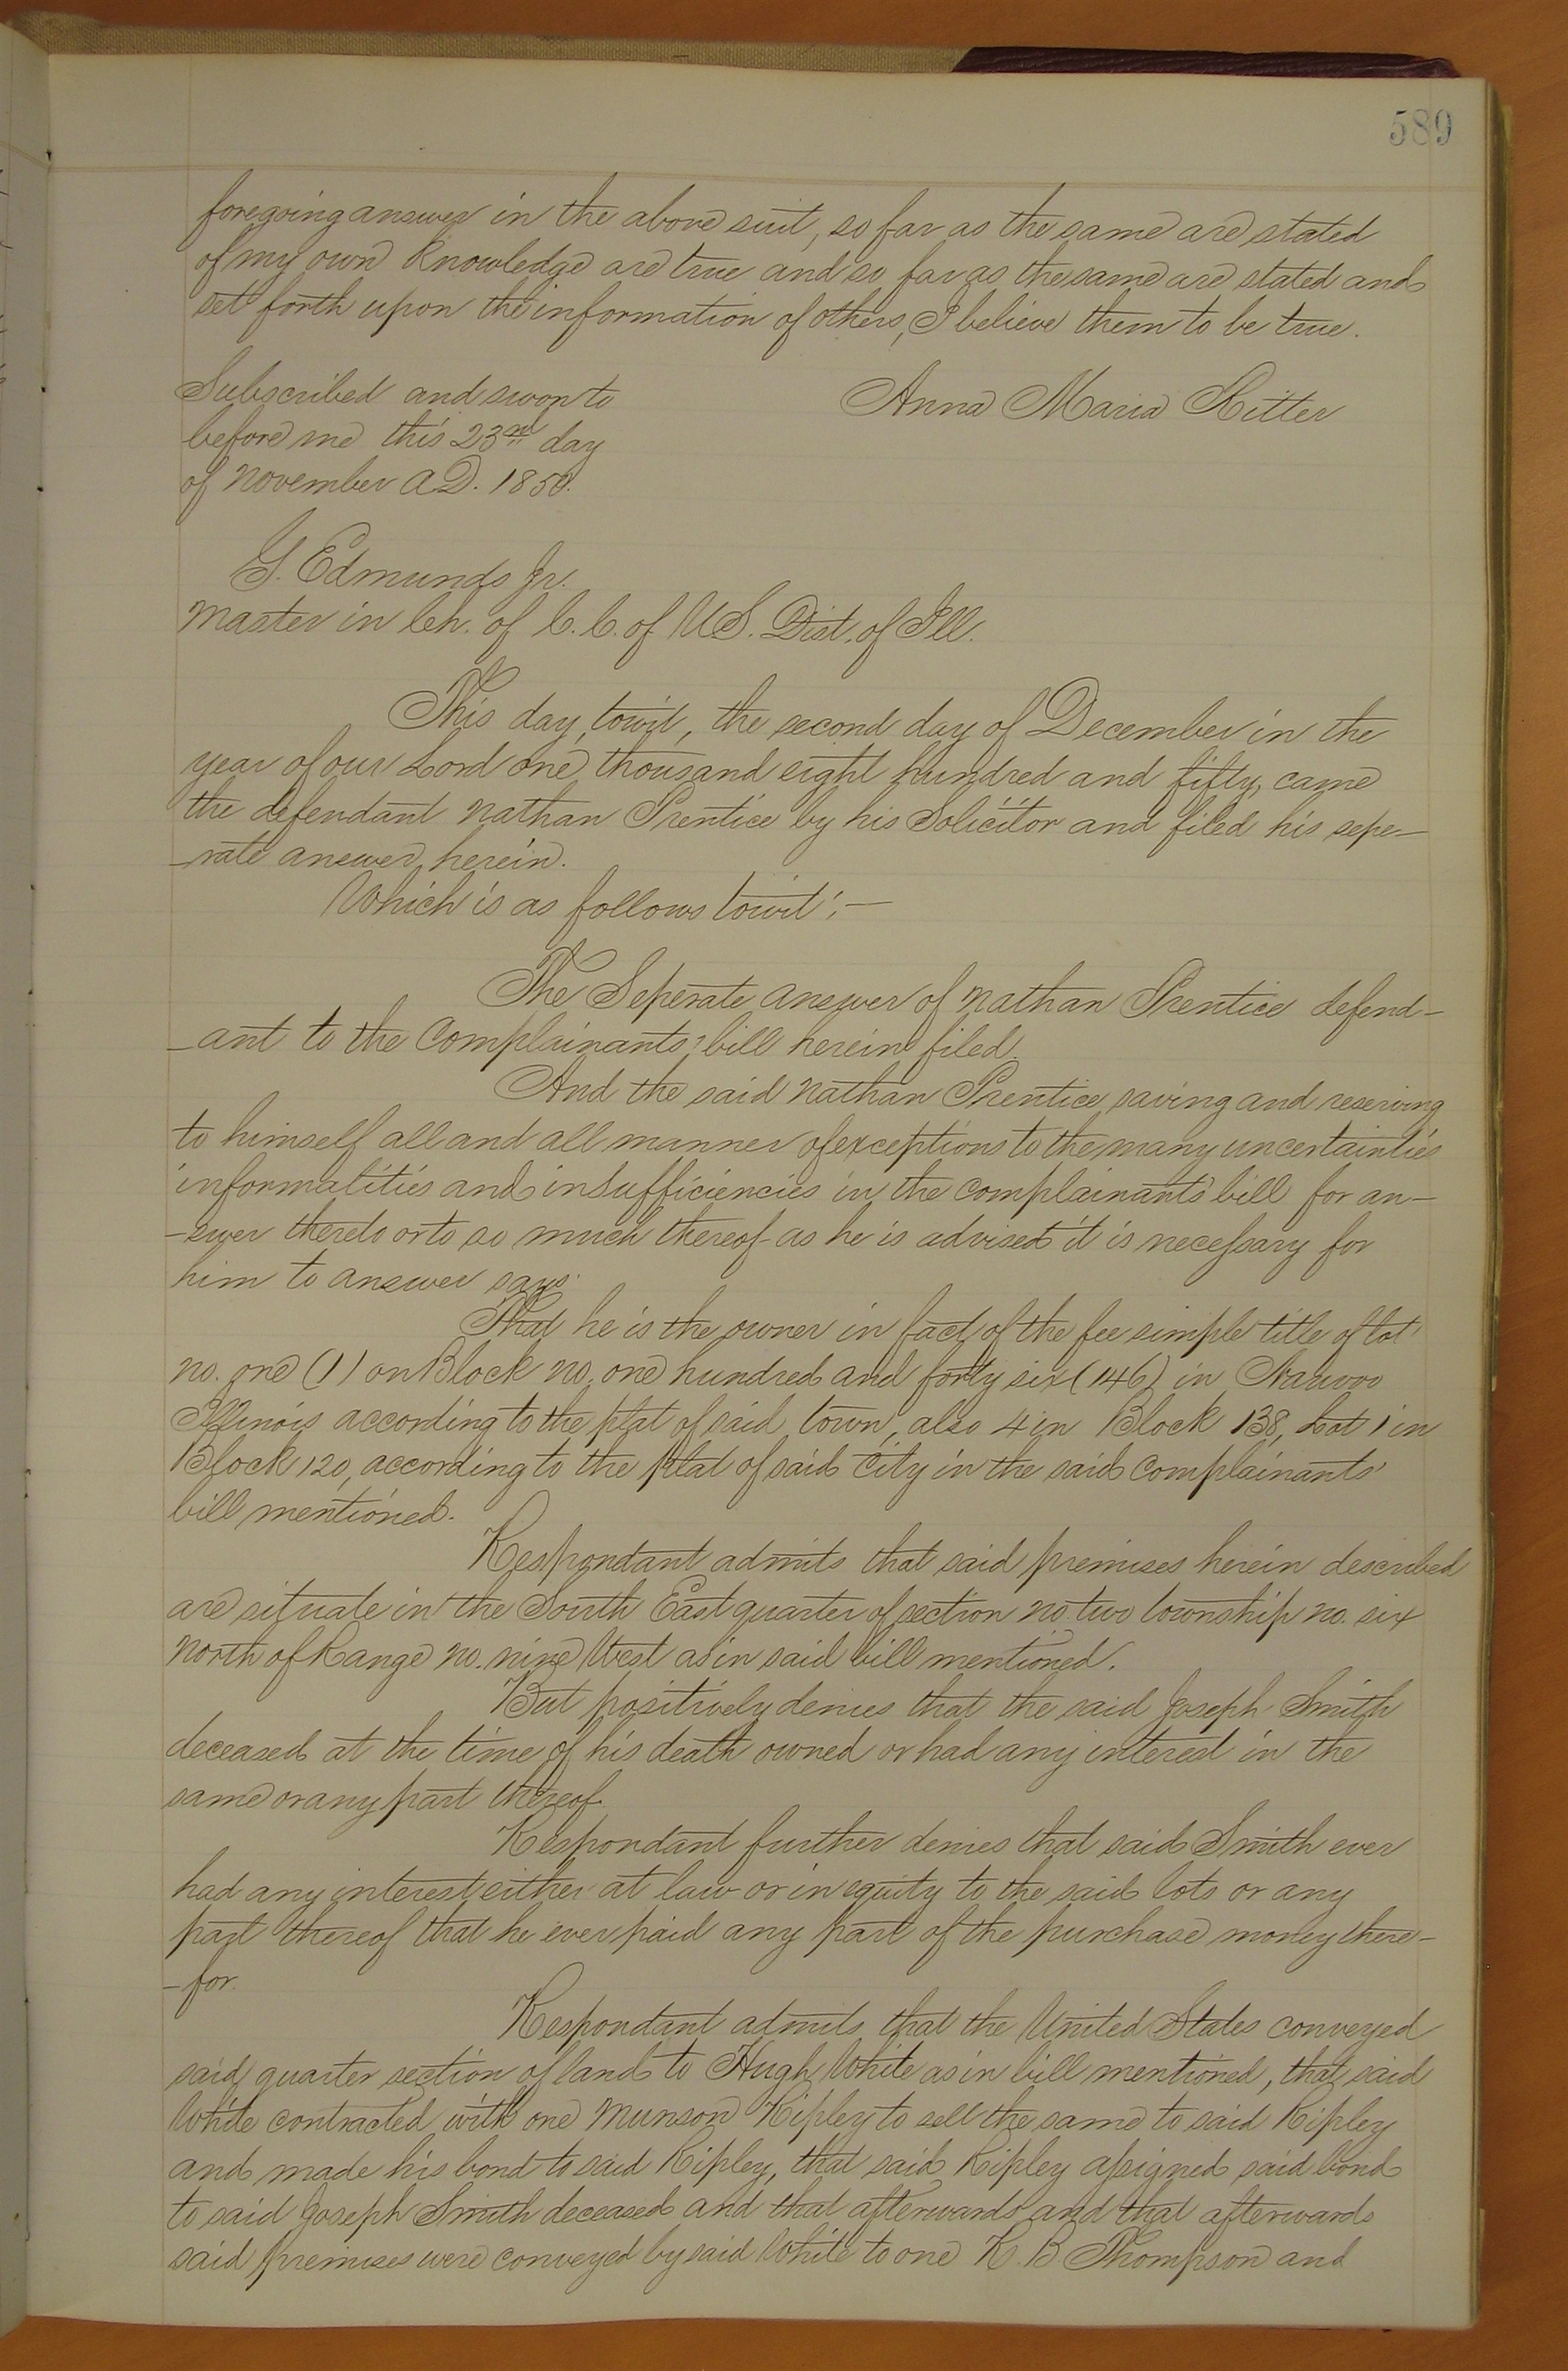 589
foregoing answer in the above suit, so far as the same are stated
of my own knowledge are true and so far as the same are stated and
set forth upon the information of others, I believe them to be true.
Subscribed and sworn to
Anna Maria Ritter
before me this 23rd day
of November A.D. 1850.
G. Edmunds Jr.
Master in Ch. of C.C. of U.S. Dist. of Ill.
This day, towit, the second day of December in the
year of our Lord one thousand eight hundred and fifty, came
the defendant Nathan Prentice by his Solicitor and filed his sepe-
-rate answer herein.
Which is as follows towit:-
The Seperate Answer of Nathan Prentice defend-
-ant to the Complainants' bill herein filed.
And the said Nathan Prentice, saving and reserving
to himself all and all manner of exceptions to the many uncertainties
informalities and insufficiencies in the complainants' bill for an-
-swer thereto or to so much thereof as he is advised it is necessary for
him to answer says.
That he is the owner in fact of the fee simple title of lot
no. one (1) on Block no. one hundred and forty six (146) in Nauvoo
Illinois according to the plat of said town, also 4 in Block 138, Lot 1 in
Block 120, according to the plat of said City in the said Complainants'
bill mentioned.
Respondant admits that said premises herein described
are situate in the South East quarter of section no. two township no. six
North of Range no. nine West as in said bill mentioned.
But positively denies that the said Joseph Smith
deceased at the time of his death owned or had any interest in the
same or any part thereof.
Respondant further denies that said Smith ever
had any interest either at law or in equity to the said lots or any
part thereof that he ever paid any part of the purchase money there-
-for.
Respondant admits that the United States conveyed
said quarter section of land to Hugh White as in bill mentioned, that said
White contracted with one Munson Ripley to sell the same to said Ripley
and made his bond to said Ripley, that said Ripley assigned said bond
to said Joseph Smith deceased and that afterwards and that afterwards
said premises were conveyed by said White to one R. B. Thompson and